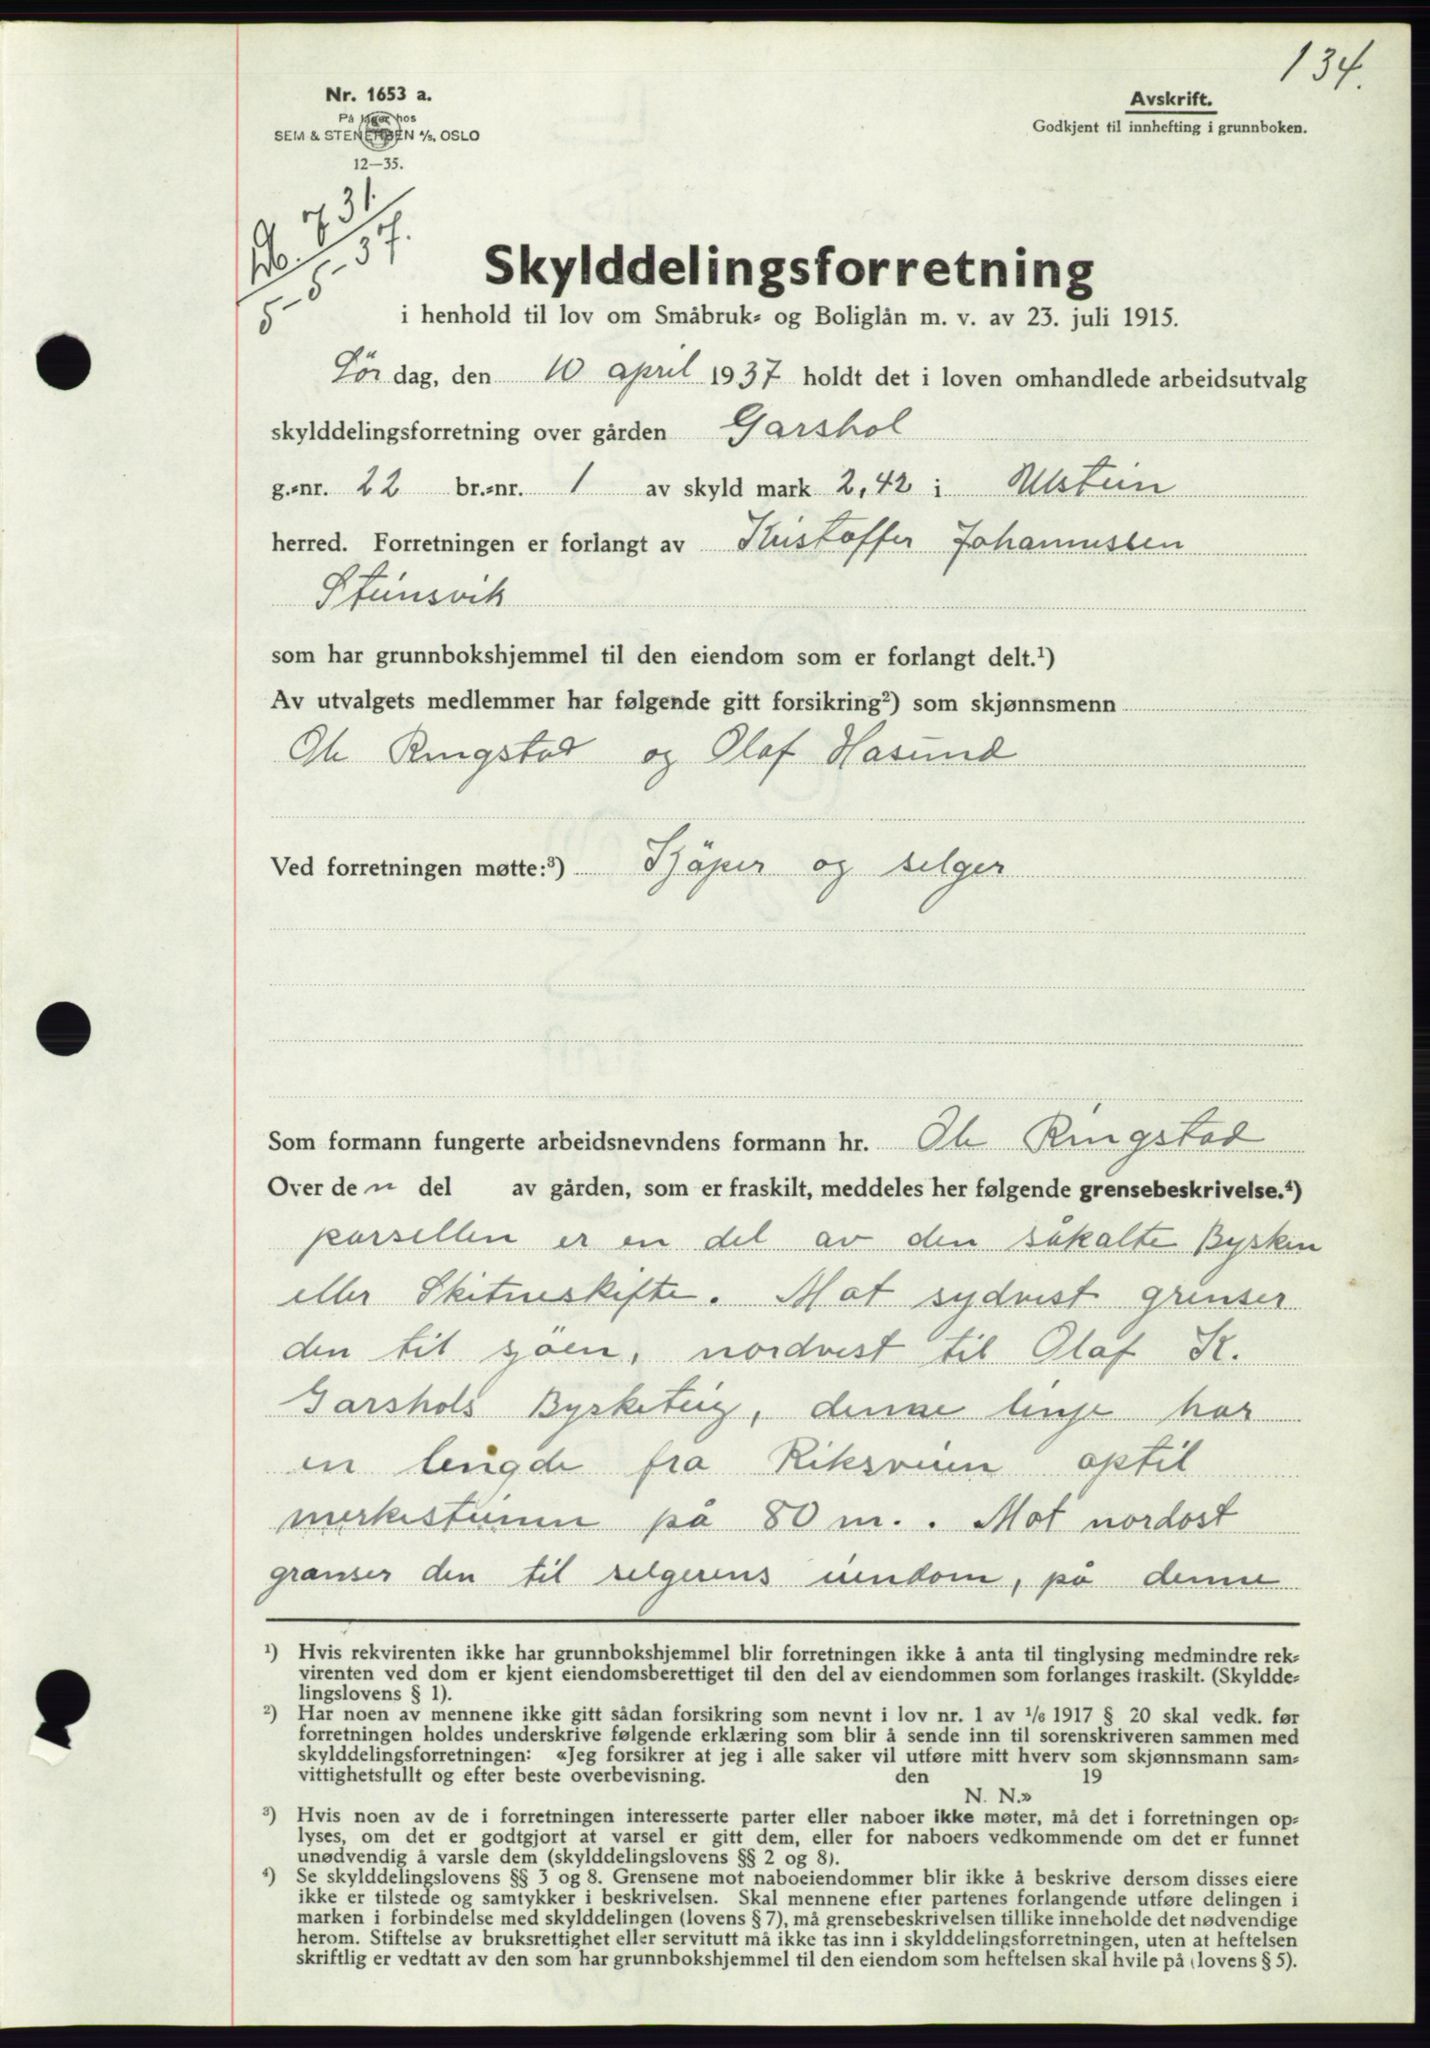 134.
Nr. 1653 a.
På lager hos
SEM & STENERSEN A/S, OSLO
12—35.
Avskrift.
Godkjent til innhefting i grunnboken.
Db. 731.
5-5-37.
Skylddelingsforretning
i henhold til lov om Småbruk- og Boliglån m. v. av 23. juli 1915.
Lör dag, den 10 april 1937 holdt det i loven omhandlede arbeidsutvalg
skylddelingsforretning over gården Garshol
g.-nr. 22 br.-nr. 1 av skyld mark 2,42 i Ulstein
herred. Forretningen er forlangt av Kristoffer Johannessen
Steinsvik
som har grunnbokshjemmel til den eiendom som er forlangt delt.¹)
Av utvalgets medlemmer har følgende gitt forsikring²) som skjønnsmenn
Ole Ringstad og Olaf Hasund
Ved forretningen møtte:³) Kjöper og selger
Som formann fungerte arbeidsnevndens formann hr. Ole Ringstad
Over den del av gården, som er fraskilt, meddeles her følgende grensebeskrivelse.⁴)
parsellen er en del av den såkalte Bysken
eller Skitneskifte. Mot sydvest grenser
den til sjöen, nordvest til Olaf K.
Garshols Bysketeig, denne linje har
en lengde fra Riksveien optil
merkesteinen på 80 m.. Mot nordost
grænser den til selgerens eiendom, på denne
¹) Hvis rekvirenten ikke har grunnbokshjemmel blir forretningen ikke å anta til tinglysing medmindre rek-
virenten ved dom er kjent eiendomsberettiget til den del av eiendommen som forlanges fraskilt. (Skyldde-
lingslovens § 1).
²) Har noen av mennene ikke gitt sådan forsikring som nevnt i lov nr. 1 av ¹/₆ 1917 § 20 skal vedk. før
forretningen holdes underskrive følgende erklæring som blir å sende inn til sorenskriveren sammen med
skylddelingsforretningen: «Jeg forsikrer at jeg i alle saker vil utføre mitt hverv som skjønnsmann sam-
vittighetsfullt og efter beste overbevisning. den 19
N. N.»
³) Hvis noen av de i forretningen interesserte parter eller naboer ikke møter, må det i forretningen op-
lyses, om det er godtgjort at varsel er gitt dem, eller for naboers vedkommende om det er funnet
unødvendig å varsle dem (skylddelingslovens §§ 2 og 8).
⁴) Se skylddelingslovens §§ 3 og 8. Grensene mot naboeiendommer blir ikke å beskrive dersom disses eiere
ikke er tilstede og samtykker i beskrivelsen. Skal mennene efter partenes forlangende utføre delingen i
marken i forbindelse med skylddelingen (lovens § 7), må grensebeskrivelsen tillike inneholde det nødvendige
herom. Stiftelse av bruksrettighet eller servitutt må ikke tas inn i skylddelingsforretningen, uten at heftelsen
skriftlig er vedtatt av den som har grunnbokshjemmel til den eiendom som heftelsen skal hvile på (lovens § 5).